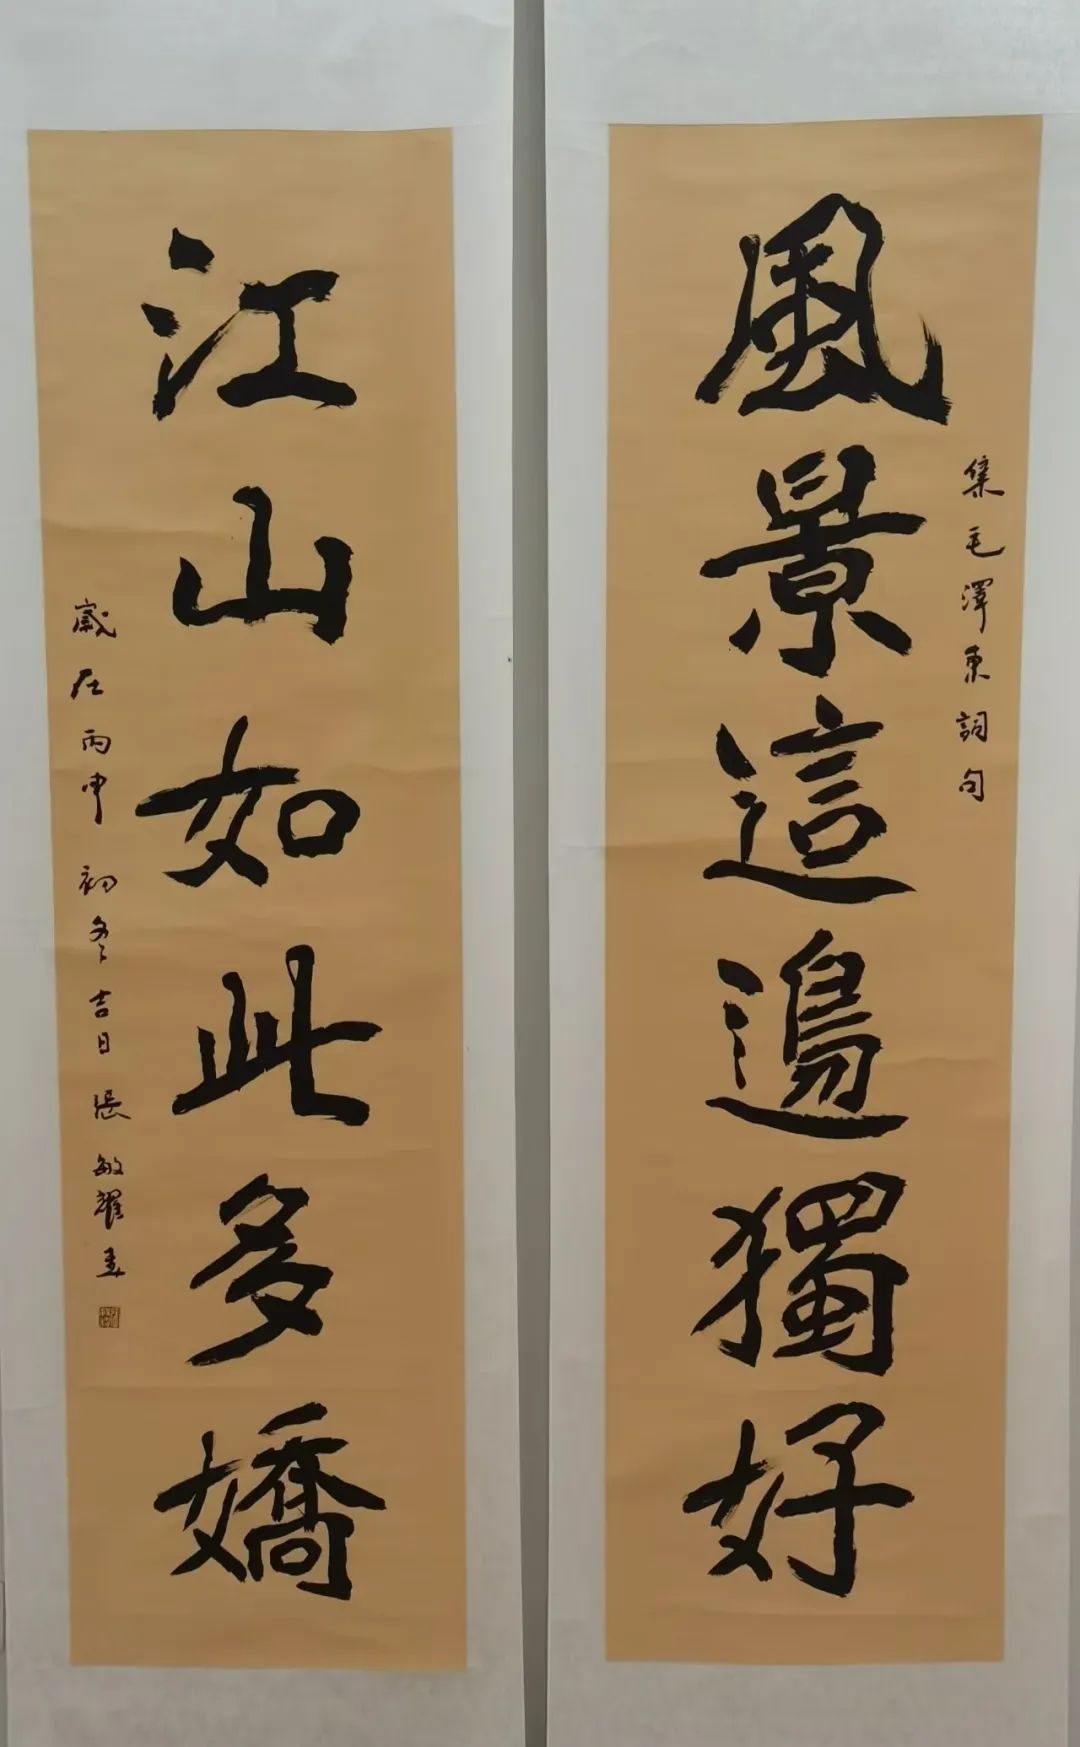 風景這邊獨好
集毛澤東詞句
江山如此多嬌
歲在丙申初冬吉日張敏耀書